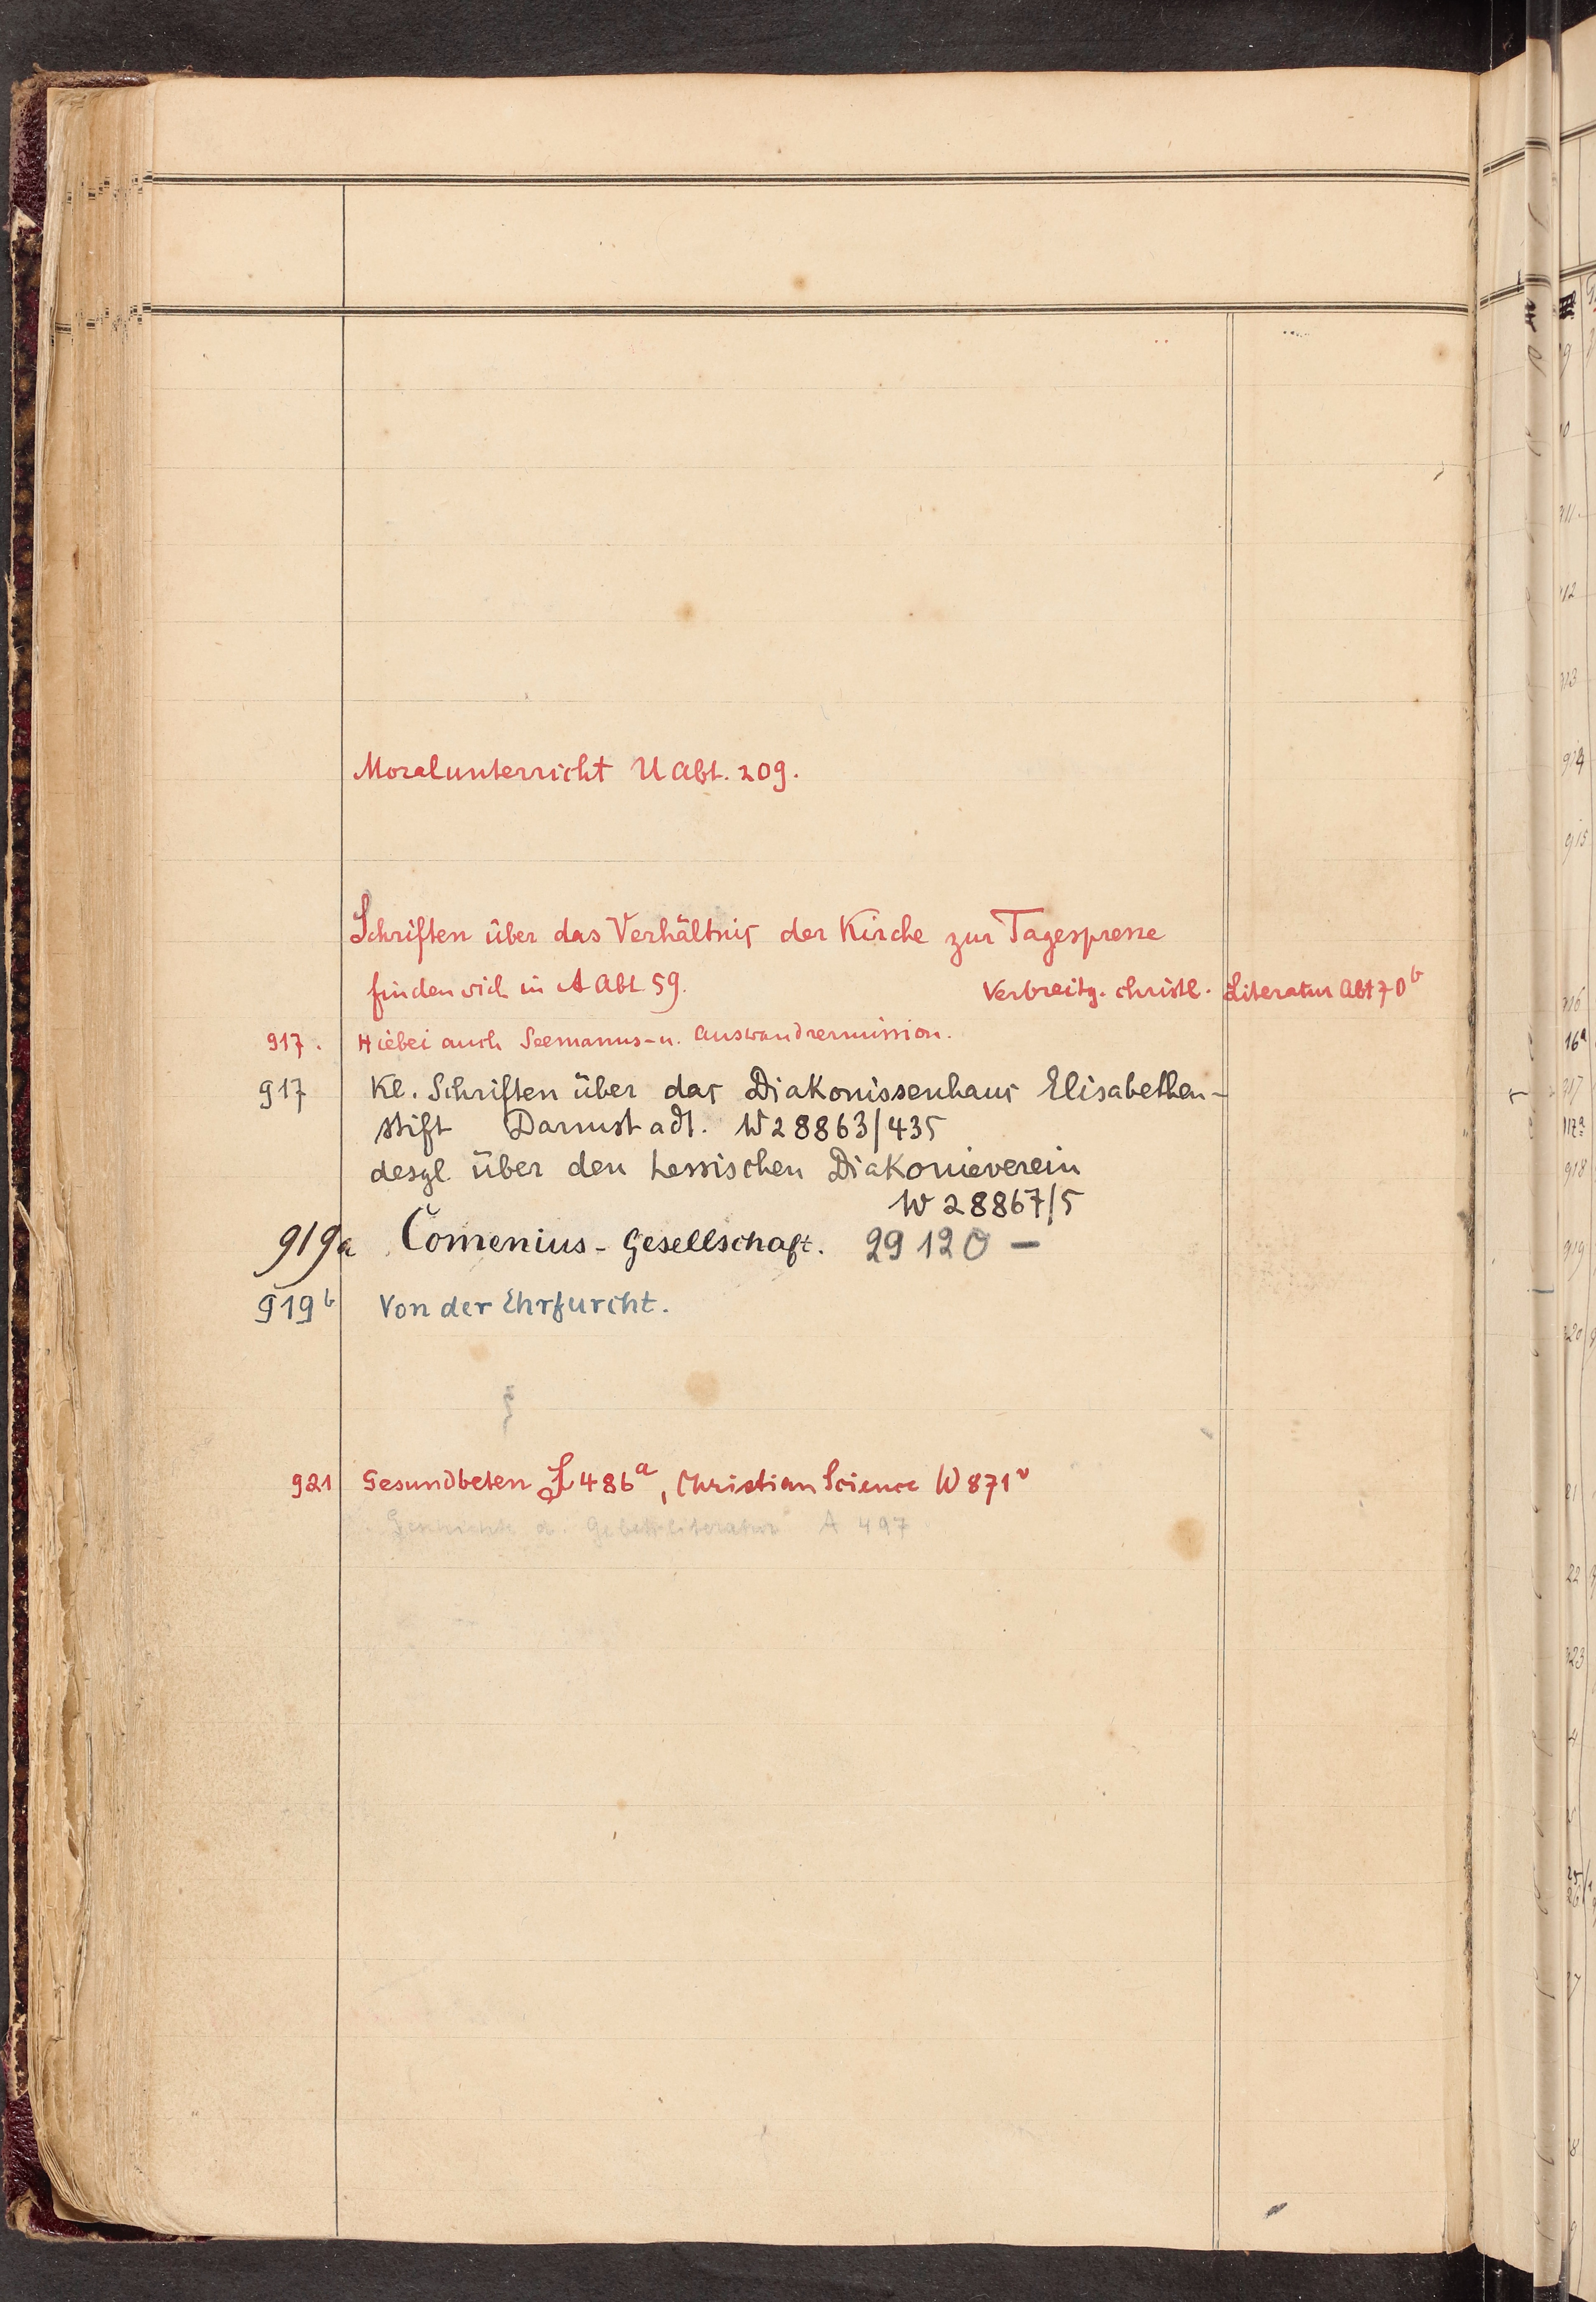 Moralunterricht U Abt. 209.
Schriften über das Verhältnis der Kirche zur Tagespresse
finden sich in A Abt. 59. Verbreitg. christl. Literatur Abt 70b
917. Hiebei auch Seemanns- u. Auswandrermission.
917 Kl. Schriften über das Diakonissenhaus Elisabethen-
stift Darmstadt. W 28863/435
desgl. über den hessischen Diakonieverein
W 28867/5
919a Comenius-Gesellschaft. 29120 —
919b Von der Ehrfurcht.
921 Gesundbeten S 486a, Christian Science W 871v
Geschichte d. Gebetsliteratur A 497